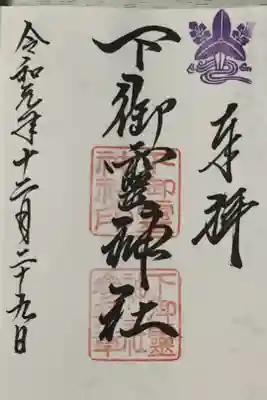 奉拝
下御霊神社
令和元年十二月二十九日